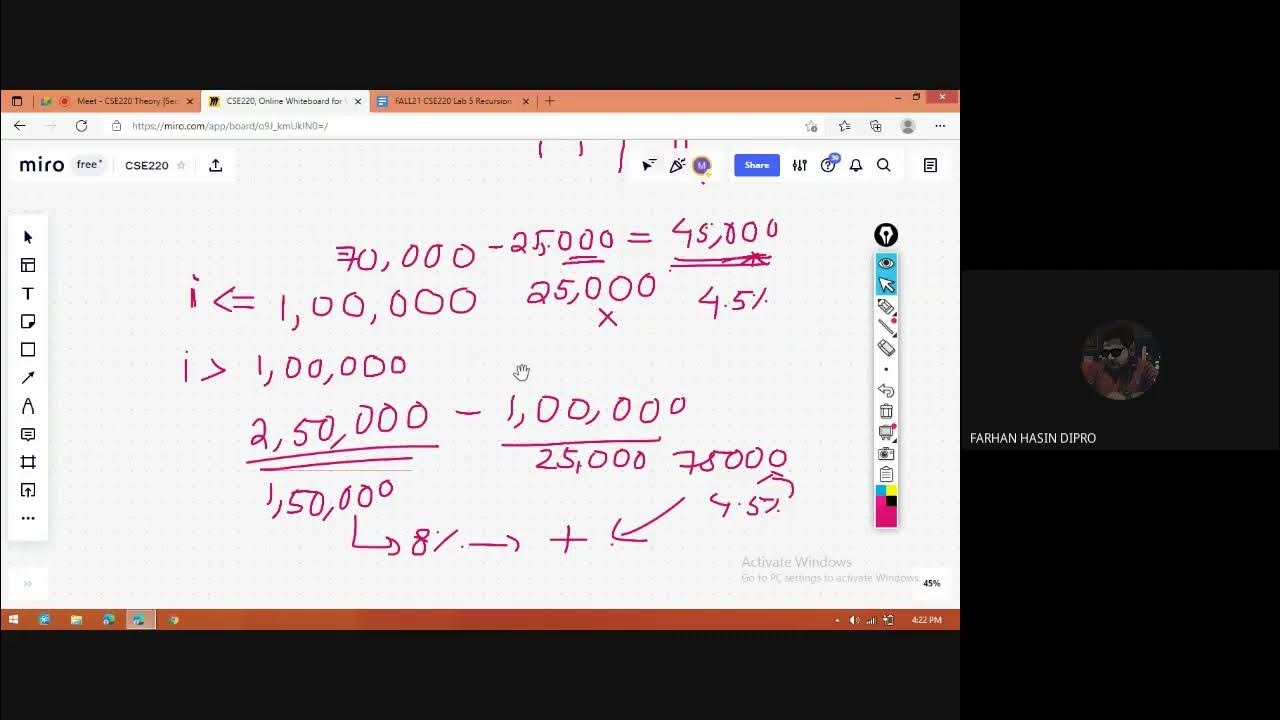 Meet - CSE220 Theory [Sec
CSE220, Online Whiteboard for
FALL21 CSE220 Lab 5 Recursion
https://miro.com/app/board/o9J_kmUkIN0=/
miro free CSE220
M
Share
39
70,000 - 25,000 = 45,000
i <= 1,00,000 25,000 4.5%
x
i > 1,00,000
2,50,000 - 1,00,000
25,000 75000
1,50,000 4.5%
8% +
FARHAN HASIN DIPRO
Activate Windows
Go to PC settings to activate Windows.
45%
4:22 PM